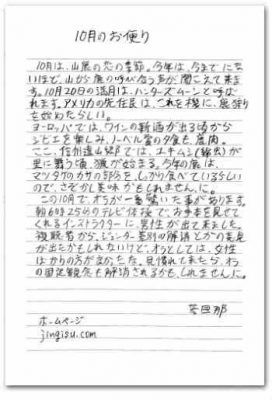 10月のお便り
10月は、山鹿の恋の季節。今年は、今までにな
いほど、山から鹿の呼び合う声が聞こえて来ま
す。10月20日の満月は、ハンターズムーンと呼ば
れます。アメリカの先住民は、これを機に、鹿狩り
を始めたらしい。
ヨーロッパでは、ワインの新酒が出る頃から
ジビエを楽しみ、ノーベル賞の夕食も鹿肉。
ここ、信州遠山郷では、エチュウ(綿虫)が
里に舞う頃、猟が始まる。今年の鹿は、
マツタケのカサの部分を、しっかり食べているらしい
ので、さぞかし美味かもしれませんに。
この10月で、オラが一番驚いた事があります。
朝6時25分のテレビ体操で、お手本を見せて
くれるインストラクターに、男性が出て来ました。
視聴者から、ジェンダー差別の解消とかの意見
が出たかもしれないけど、オラとしては、女性
ばかりの方が良かった。見慣れてきたら、オラ
の固定観念も解消されるかも、しれませんに。
ホームページ
jingisu.com